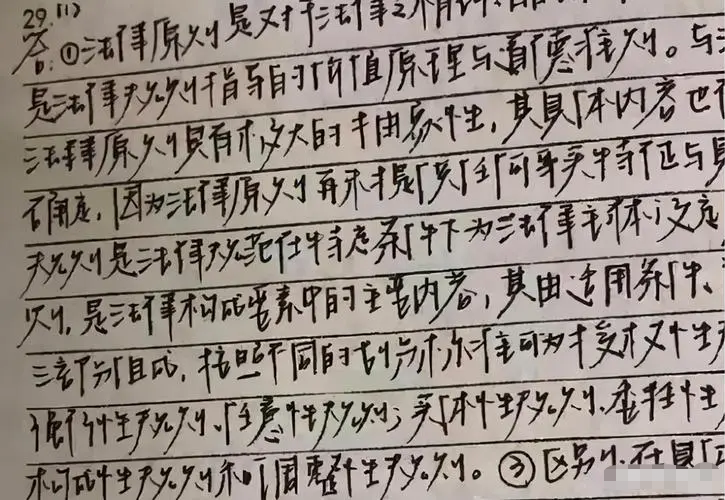 29.(1)
答:①法律原则是对于法律
是法律规则指导的价值原理与道德准则。与
法律原则具有极大的抽象性,其具体内容也
确定,因为法律原则再不提供任何事实特征与
规则是法律规范在特定条件下为法律主体设定
则,是法律构成要素中的主要内容,其由适用条件、
三部分组成,按照不同的划分标准可为授权性
强行性规则、任意性规则;实体性规则、委任性
构成性规则和调整性规则。③区别:在具